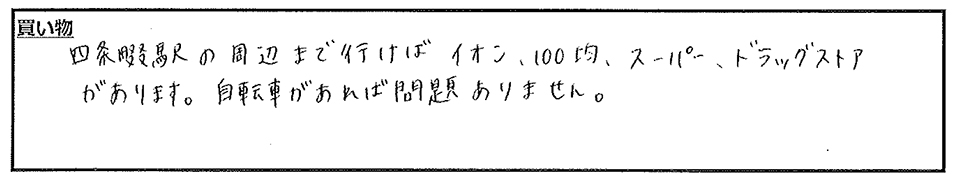 買い物
四条畷駅の周辺まで行けばイオン、100均、スーパー、ドラッグストア
があります。自転車があれば問題ありません。